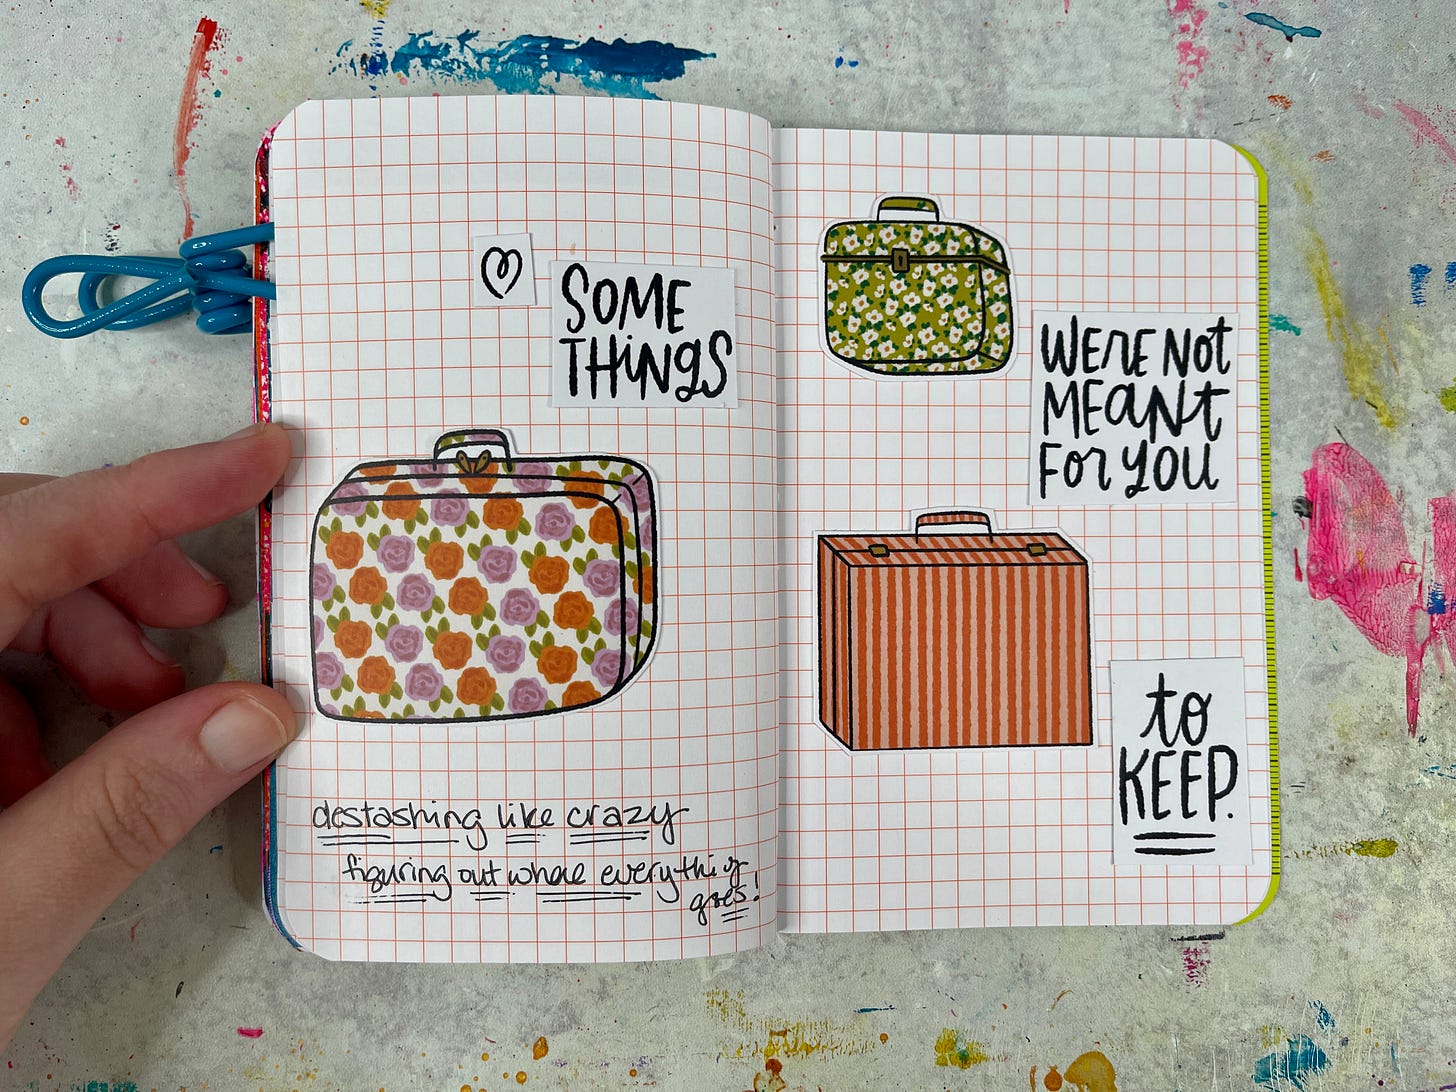 SOME
THINGS
WERE NOT
MEANT
FOR YOU
to
KEEP.
destashing like crazy
figuring out where everything
goes!